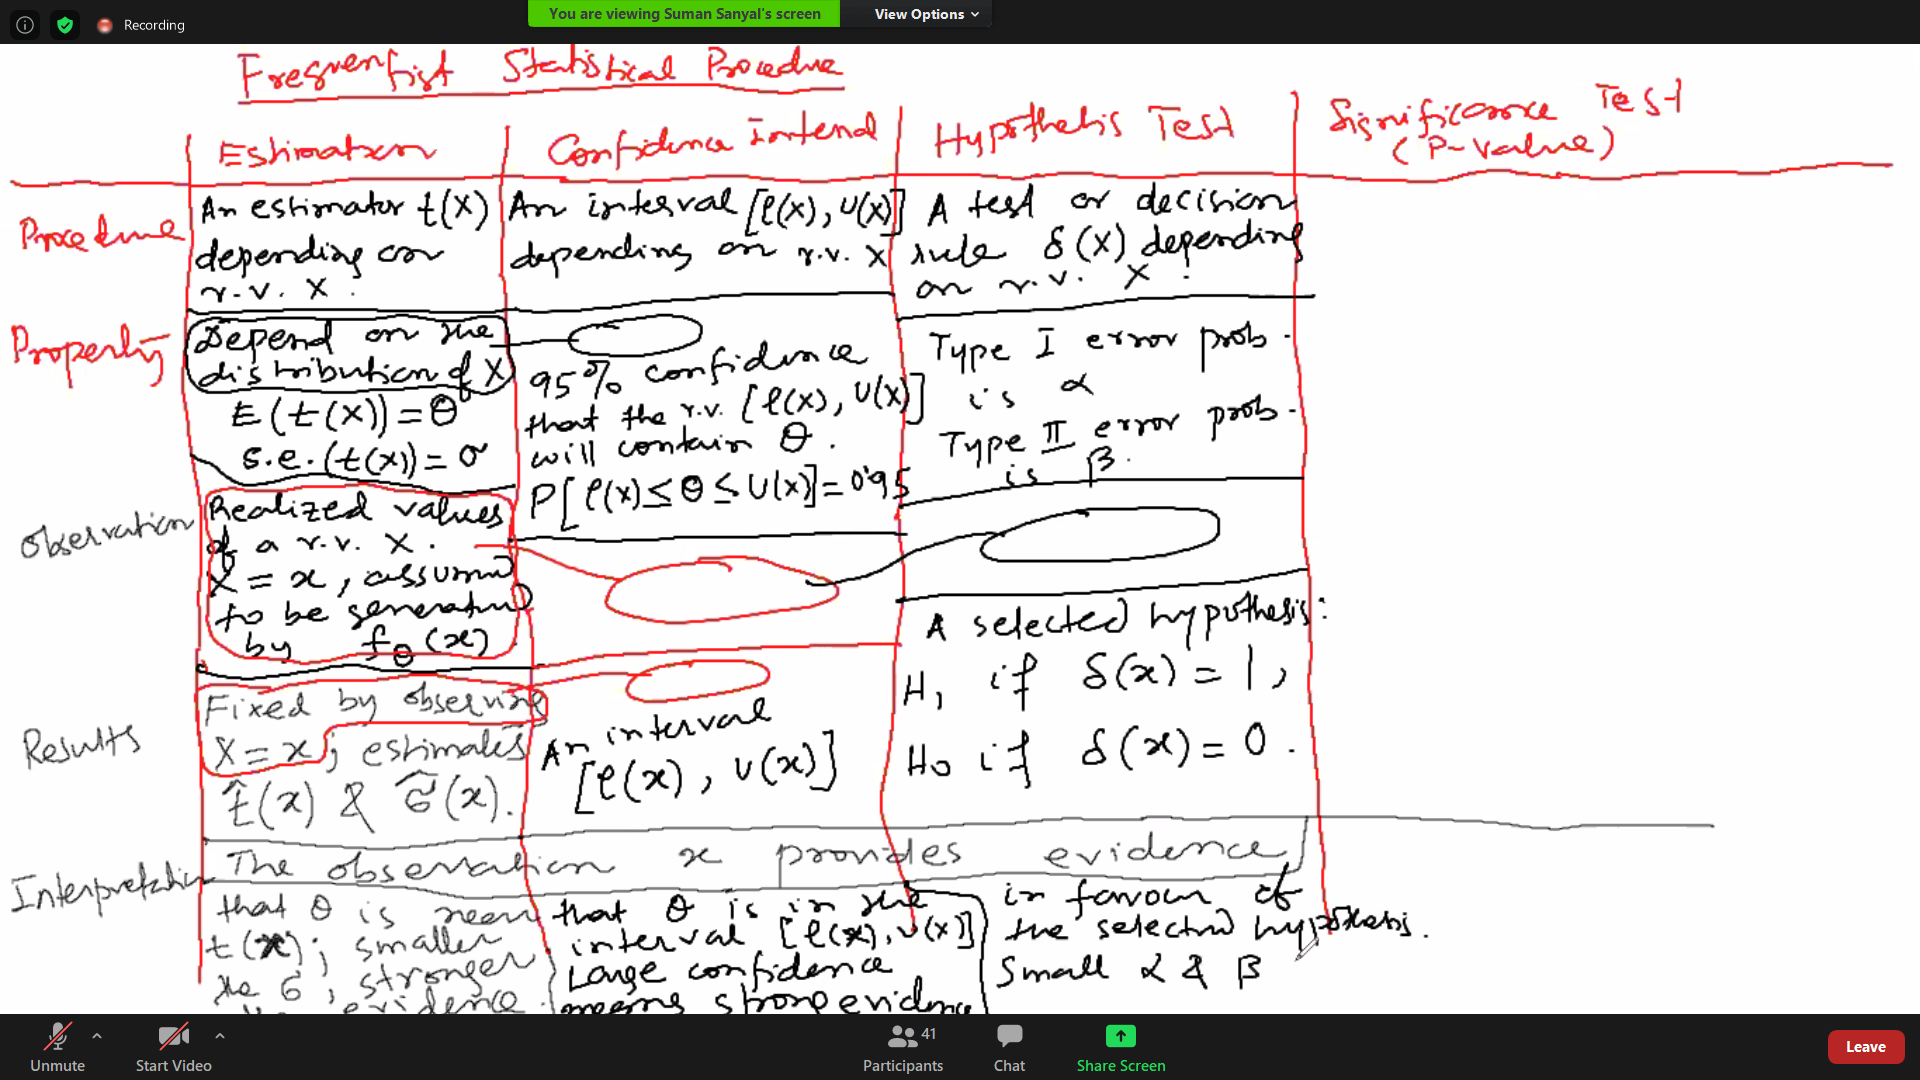 Recording
You are viewing Suman Sanyal's screen
View Options
Frequentist Statistical Procedure
Estimation
Confidence Interval
Hypothesis Test
Significance Test
(P-Value)
Procedure
An estimator t(X)
depending on
r.v. X.
An interval [l(X), U(X)]
depending on r.v. X
A test or decision
rule δ(X) depending
on r.v. X.
Property
Depend on the
distribution of X
E(t(X)) = θ
s.e.(t(X)) = σ
95% confidence
that the r.v. [l(X), U(X)]
will contain θ.
P[l(X) ≤ θ ≤ U(X)] = 0.95
Type I error prob.
is α
Type II error prob.
is β.
Observation
Realized values
of a r.v. X.
X = x, assumed
to be generated
by fθ(x)
Results
Fixed by observing
X = x; estimates
t̂(x) & σ̂(x).
An interval
[l(x), U(x)]
A selected hypothesis:
H1 if δ(x) = 1,
H0 if δ(x) = 0.
Interpretation
The observation x provides evidence
that θ is near
t(x); smaller
the σ, stronger
the evidence.
that θ is in the
interval [l(x), U(x)]
Large confidence
means strong evidence
in favour of
the selected hypothesis.
Small α & β
Unmute
Start Video
41
Participants
Chat
Share Screen
Leave